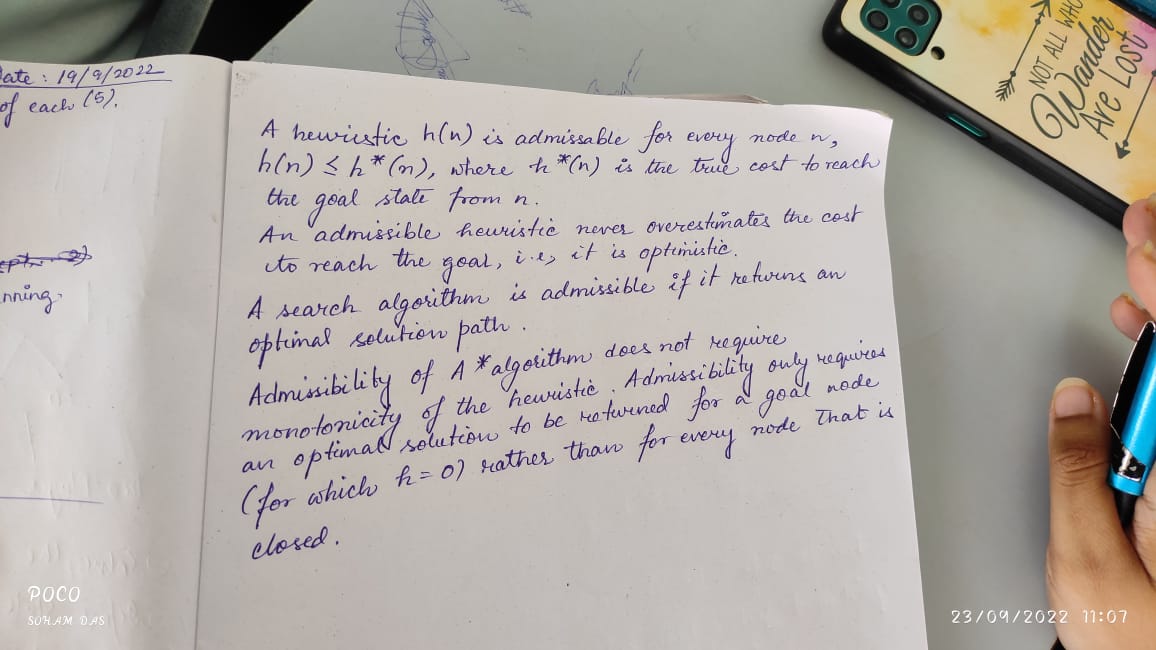 ate : 19/9/2022
of each (5).
nning
A heuristic h(n) is admissable for every node n,
h(n) ≤ h*(n), where h*(n) is the true cost to reach
the goal state from n.
An admissible heuristic never overestimates the cost
to reach the goal, i.e, it is optimistic.
A search algorithm is admissible if it returns an
optimal solution path.
Admissibility of A* algorithm does not require
monotonicity of the heuristic. Admissibility only requires
an optimal solution to be returned for a goal node
(for which h=0) rather than for every node that is
closed.
NOT ALL WHO
Wander
Are Lost
POCO
SOHAM DAS
23/09/2022 11:07